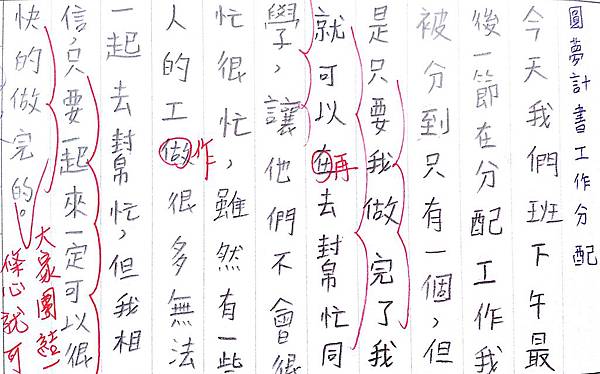 圓夢計書工作分配
今天我們班下午最
後一節在分配工作我
被分到只有一個,但
是只要我做完了我
就可以在去幫忙同
再
學,讓他們不會很
忙很忙,雖然有一些
人的工做很多無法
作
一起去幫忙,但我相
信,只要一起來一定可以很
快的做完的。
大家團結一
條心就可